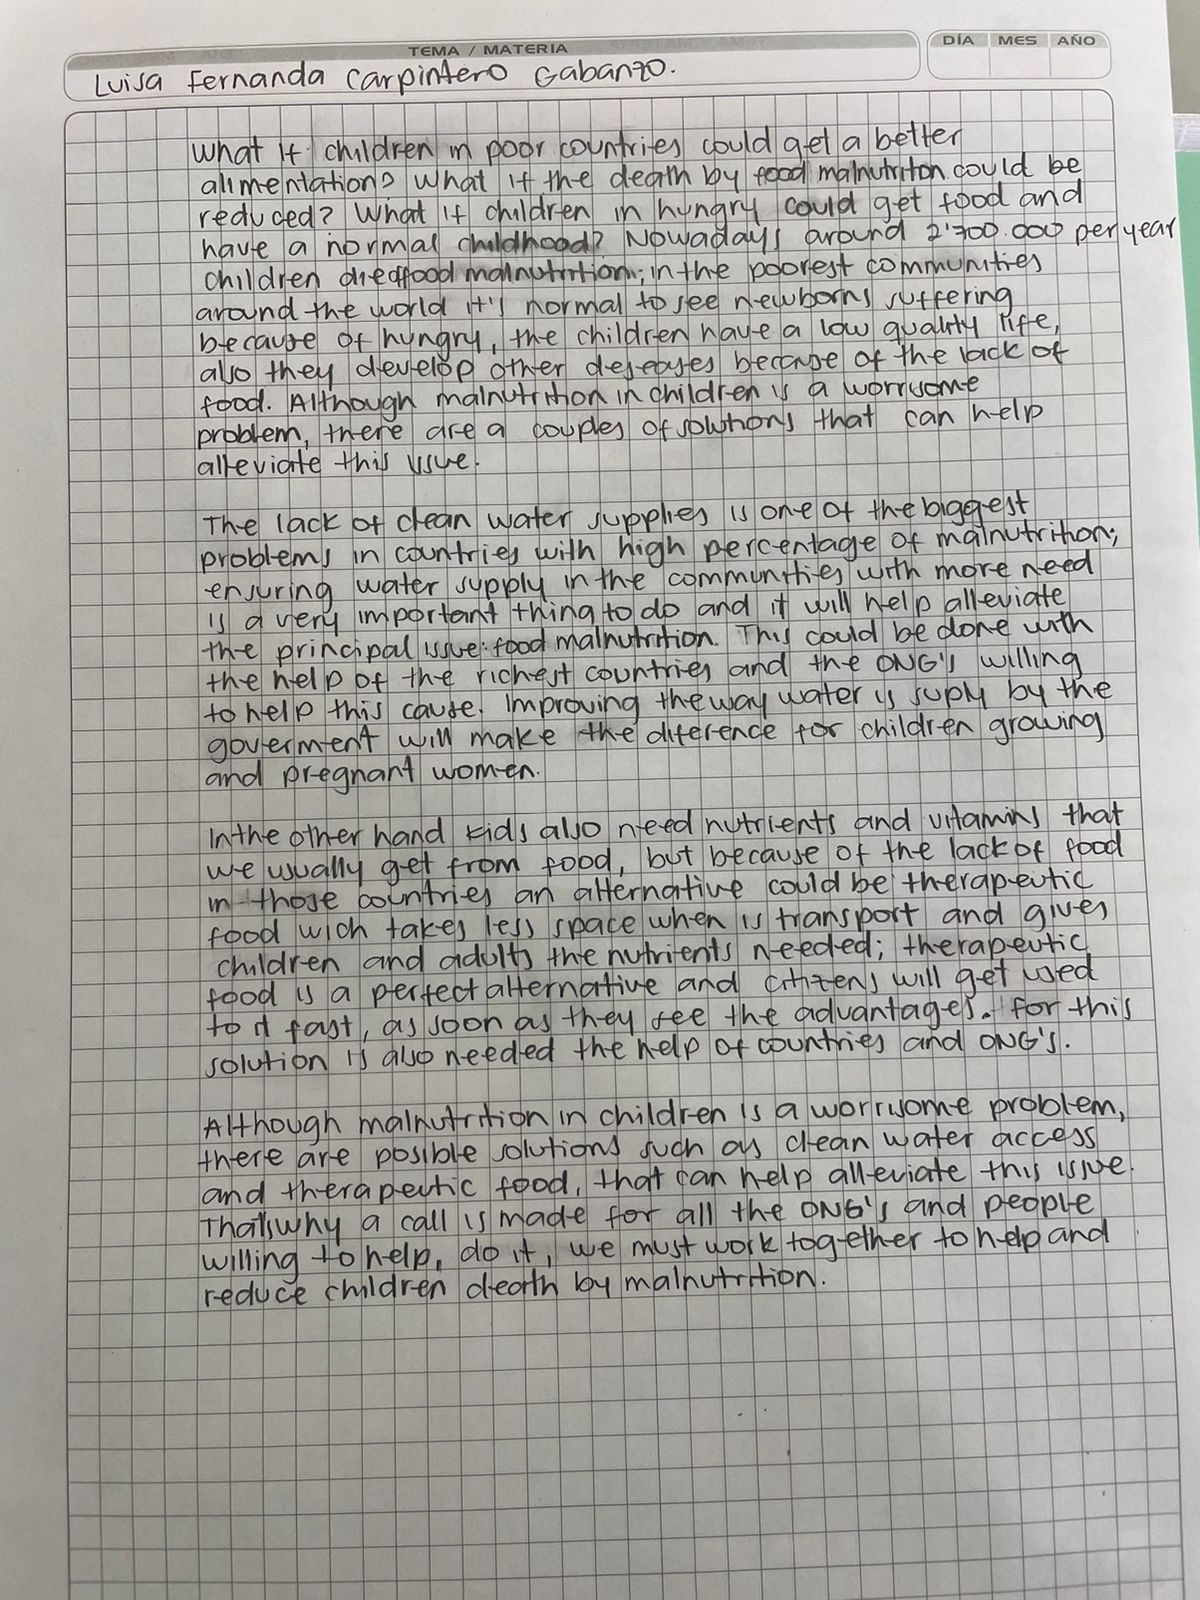 TEMA / MATERIA
DÍA MES AÑO
Luisa Fernanda Carpintero Gabanzo.
What if children in poor countries could get a better
alimentation? What if the death by food malnutriton could be
reduced? What if children in hungry could get food and
have a normal childhood? Nowadays around 2'700.000 per year
children died food malnutrition; in the poorest communities
around the world it's normal to see newborns suffering
because of hungry, the children have a low quality life,
also they develop other deseases because of the lack of
food. Although malnutrition in children is a worrisome
problem, there are a couples of solutions that can help
alleviate this issue.
The lack of clean water supplies is one of the biggest
problems in countries with high percentage of malnutrition;
ensuring water supply in the communities with more need
is a very important thing to do and it will help alleviate
the principal issue: food malnutrition. This could be done with
the help of the richest countries and the ONG's willing
to help this cause. Improving the way water is suply by the
goverment will make the diference for children growing
and pregnant women.
In the other hand kids also need nutrients and vitamins that
we usually get from food, but because of the lack of food
in those countries an alternative could be therapeutic
food wich takes less space when is transport and gives
children and adults the nutrients needed; therapeutic
food is a perfect alternative and citizens will get used
to it fast, as soon as they see the advantages. For this
solution is also needed the help of countries and ONG's.
Although malnutrition in children is a worrisome problem,
there are posible solutions such as clean water access
and therapeutic food, that can help alleviate this issue.
That's why a call is made for all the ONG's and people
willing to help, do it, we must work together to help and
reduce children death by malnutrition.